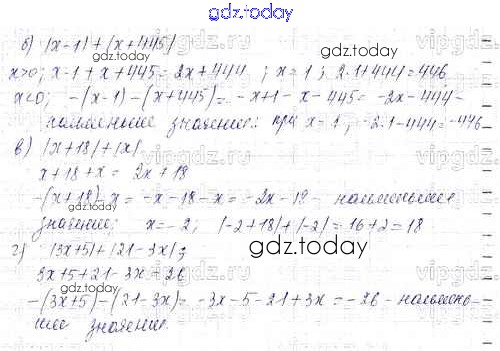 gdz.today
б) |x-1|+|x+445|
x>0; x-1+x+445=2x+444; x=1; 2·1+444=446
x<0; -(x-1)-(x+445)=-x+1-x-445=-2x-444-
наименьшее значение: при x=1; -2·1-444=-446
в) |x+18|+|x|
x+18+x=2x+18
-(x+18)-x=-x-18-x=-2x-18- наименьшее
значение; x=-2; |-2+18|+|-2|=16+2=18
г) |3x+5|+|21-3x|;
gdz.today
3x+5+21-3x=26
-(3x+5)-(21-3x)=-3x-5-21+3x=-26-наимень-
шее значение.
gdz.today